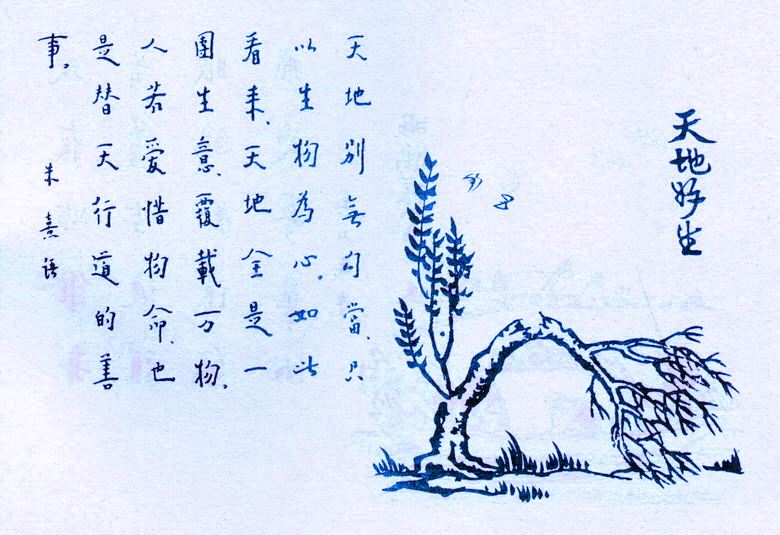 天地好生
天地別無勾當、只
以生物為心。如此
看来、天地全是一
團生意、覆載万物。
人若愛惜物命、也
是替天行道的善
事。
朱熹語